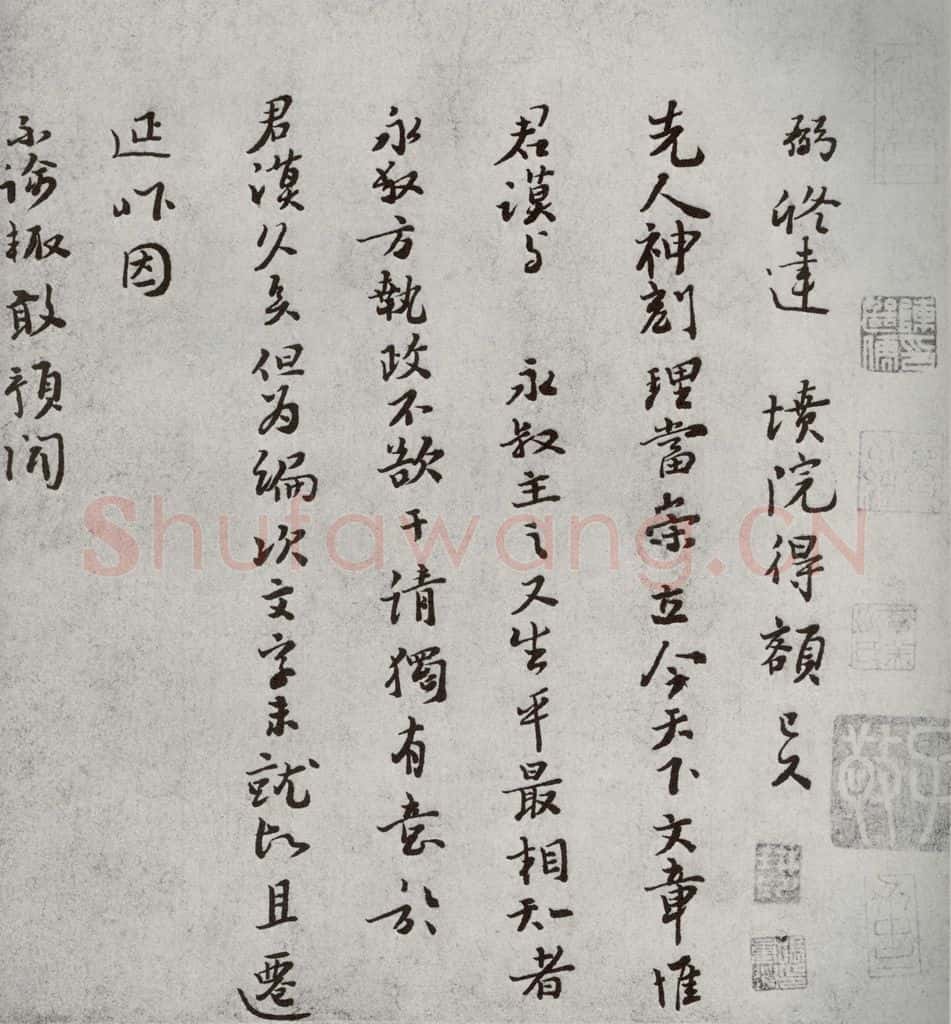 弼修建 墳院得額已久
先人神刻理當崇立今天下文章惟
君謨与 永叔主之又生平最相知者
永叔方執政不欲干請獨有意於
君謨久矣但为編次文字未就故且遷
延昨因
示諭輒敢預聞
Shufawang.CN